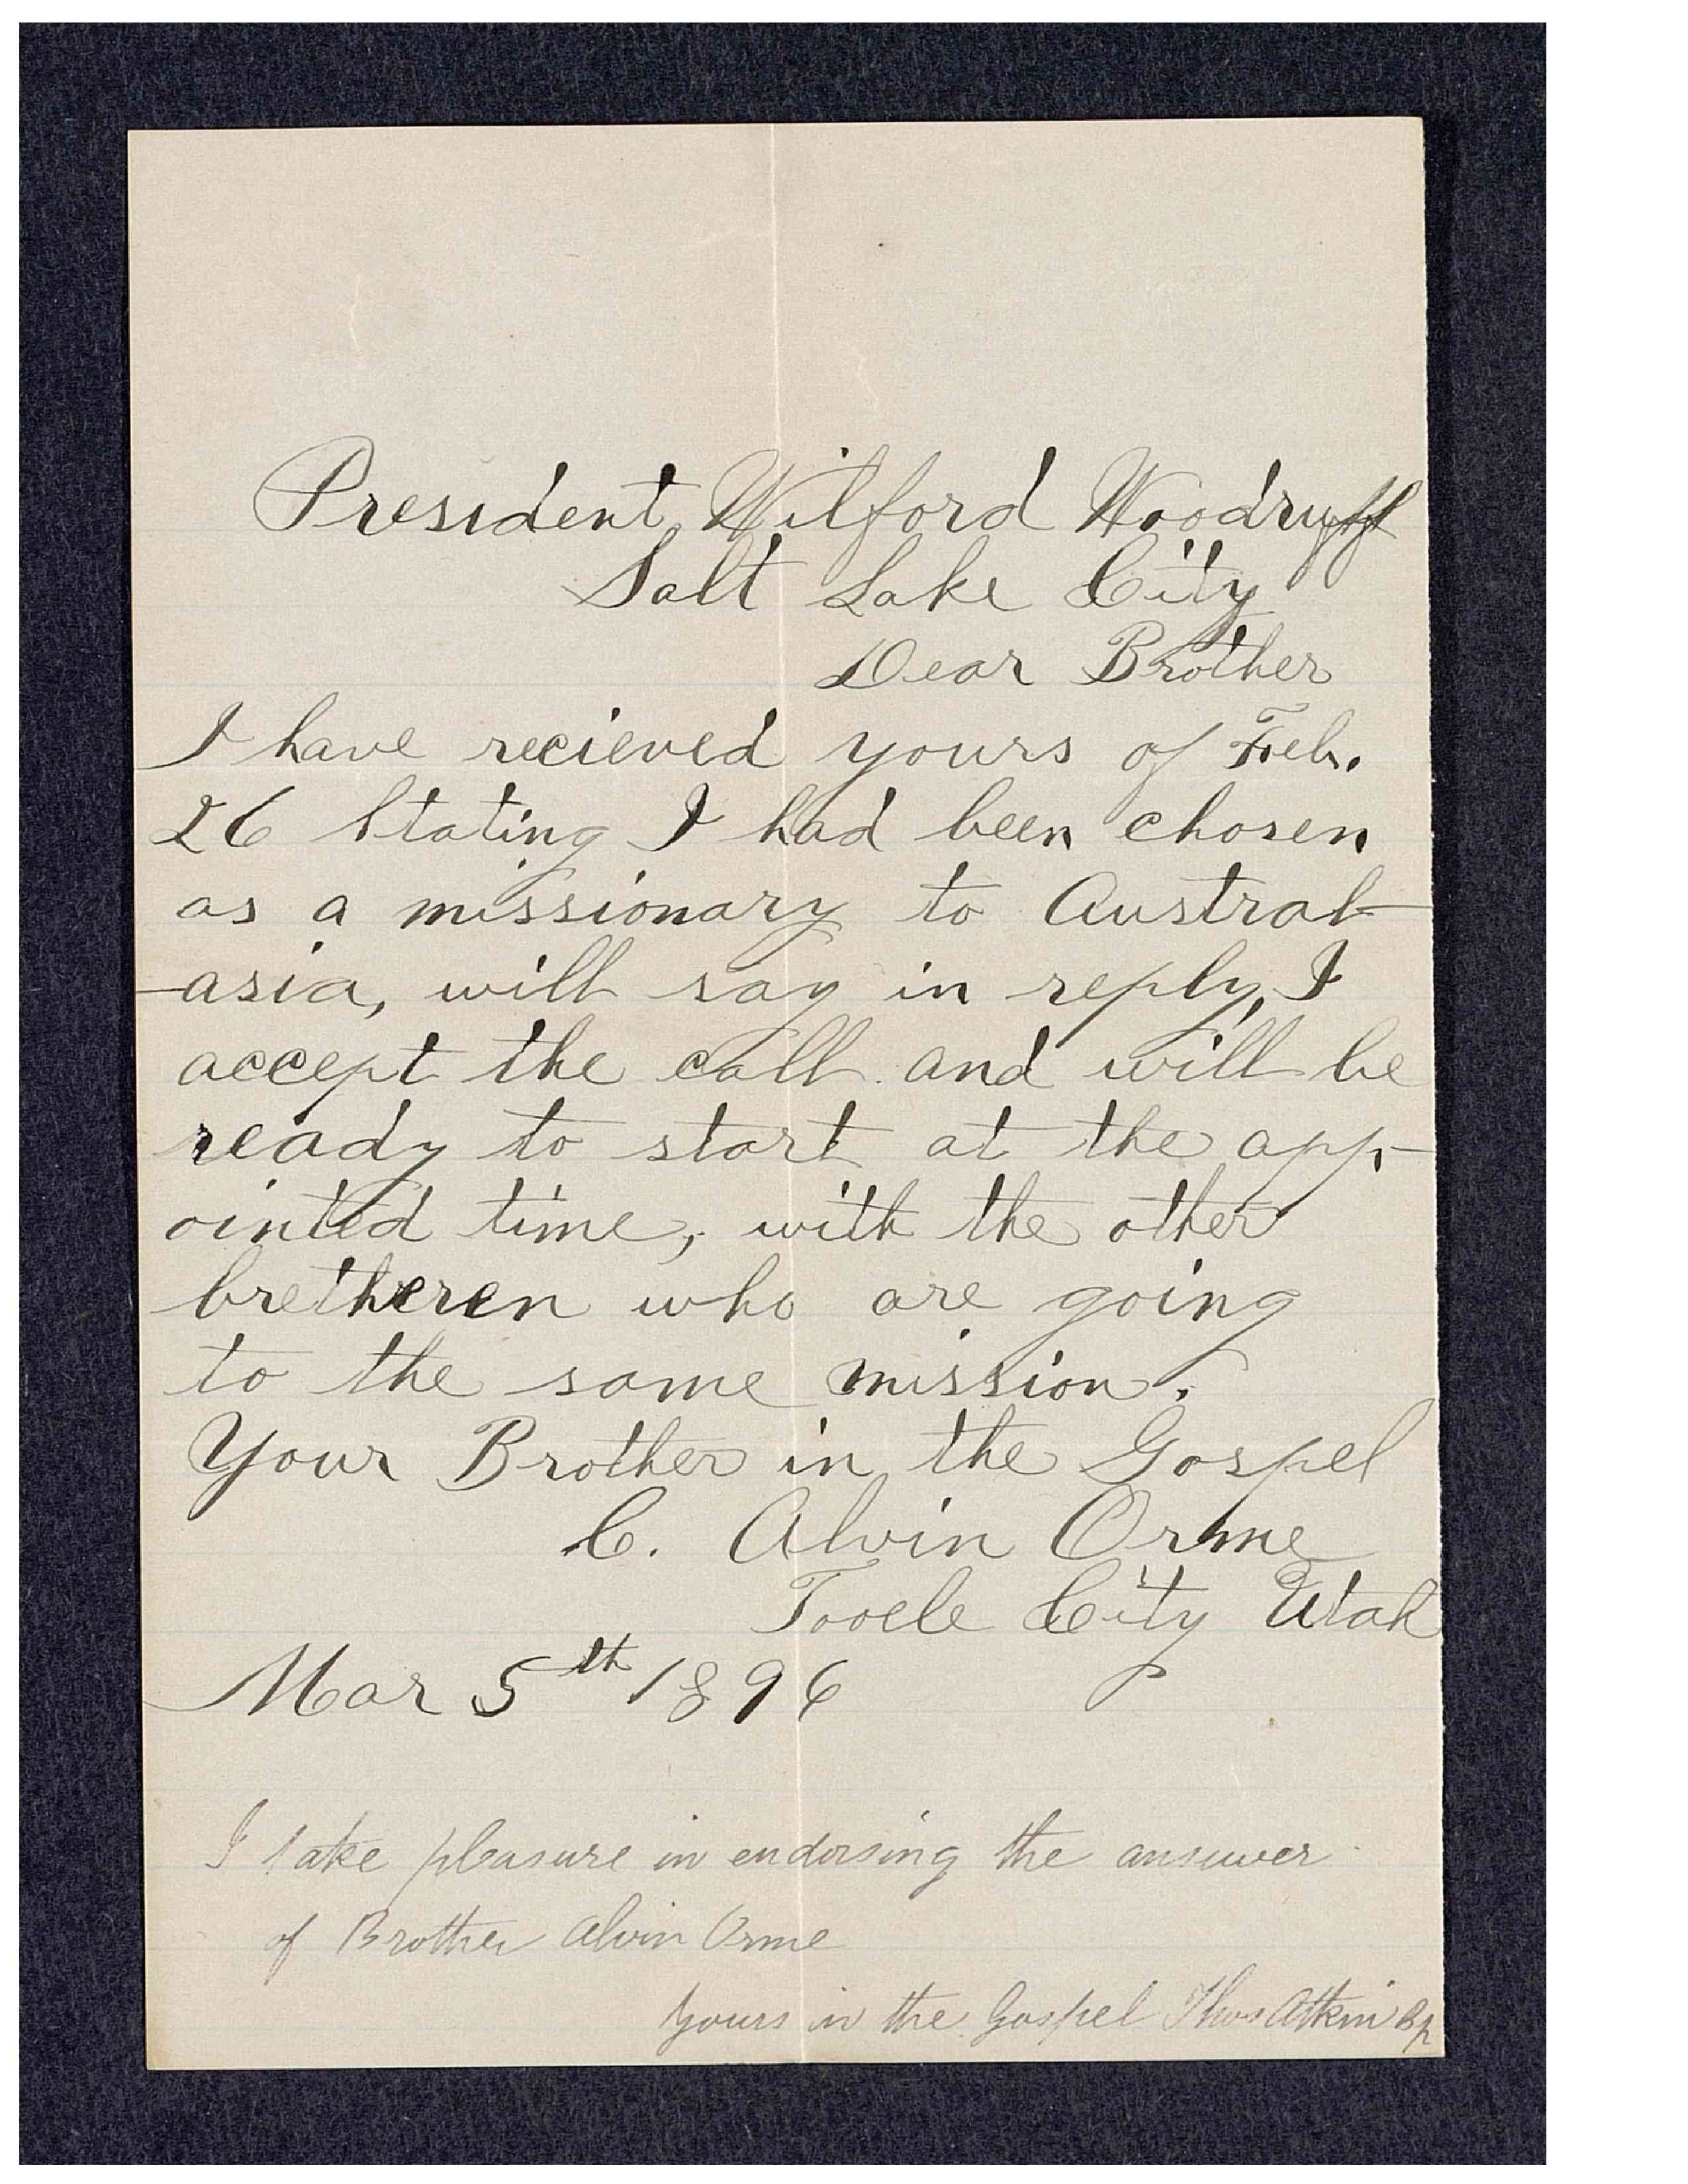 President Wilford Woodruff
Salt Lake City
Dear Brother
I have recieved yours of Feb.
26 Stating I had been chosen
as a missionary to Austral-
-asia, will say in reply, I
accept the call and will be
ready to start at the app-
ointed time, with the other
bretheren who are going
to the same mission.
Your Brother in the Gospel
C. Alvin Orme
Tooele City Utah
Mar 5th 1896
I take pleasure in endorsing the answer
of Brother Alvin Orme
Yours in the Gospel Thos Atkin Bp